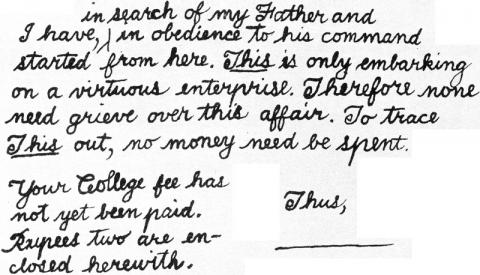 in search of my Father and
I have, in obedience to his command
started from here. This is only embarking
on a virtuous enterprise. Therefore none
need grieve over this affair. To trace
This out, no money need be spent.
Your College fee has
not yet been paid.
Rupees two are en-
closed herewith.
Thus,